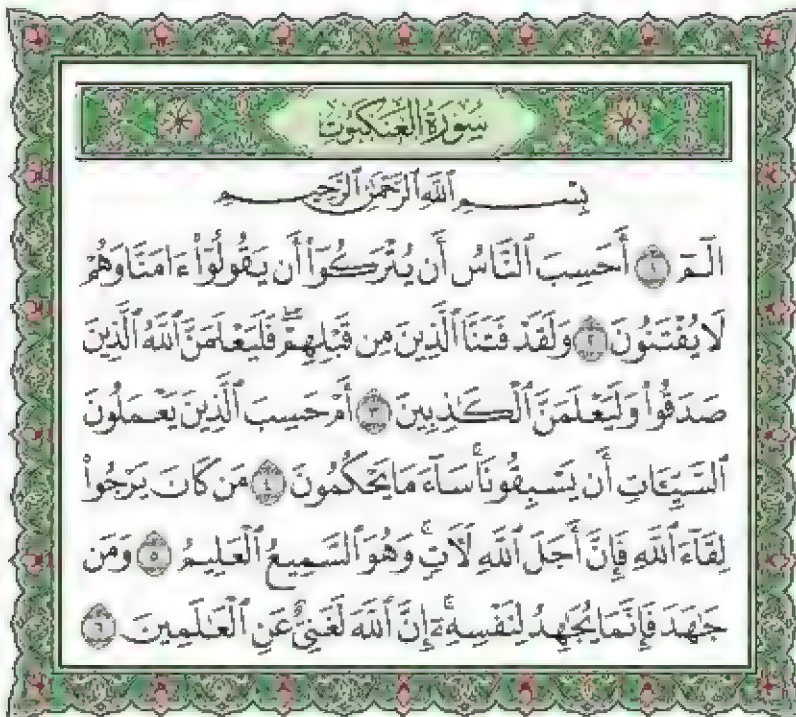 سُورَةُ العَنكَبُوت
بِسْمِ ٱللَّهِ ٱلرَّحْمَٰنِ ٱلرَّحِيمِ
الٓمٓ ١ أَحَسِبَ ٱلنَّاسُ أَن يُتْرَكُوٓا۟ أَن يَقُولُوٓا۟ ءَامَنَّا وَهُمْ
لَا يُفْتَنُونَ ٢ وَلَقَدْ فَتَنَّا ٱلَّذِينَ مِن قَبْلِهِمْ ۖ فَلَيَعْلَمَنَّ ٱللَّهُ ٱلَّذِينَ
صَدَقُوا۟ وَلَيَعْلَمَنَّ ٱلْكَٰذِبِينَ ٣ أَمْ حَسِبَ ٱلَّذِينَ يَعْمَلُونَ
ٱلسَّيِّـَٔاتِ أَن يَسْبِقُونَا ۚ سَآءَ مَا يَحْكُمُونَ ٤ مَن كَانَ يَرْجُوا۟
لِقَآءَ ٱللَّهِ فَإِنَّ أَجَلَ ٱللَّهِ لَـَٔاتٍ ۚ وَهُوَ ٱلسَّمِيعُ ٱلْعَلِيمُ ٥ وَمَن
جَٰهَدَ فَإِنَّمَا يُجَٰهِدُ لِنَفْسِهِۦٓ ۚ إِنَّ ٱللَّهَ لَغَنِىٌّ عَنِ ٱلْعَٰلَمِينَ ٦